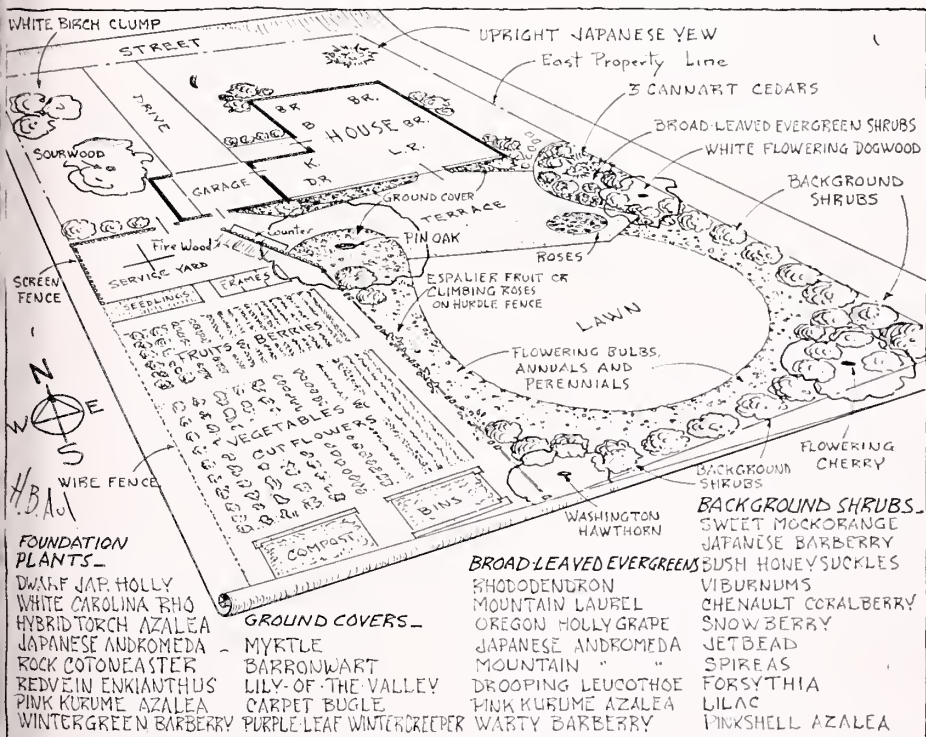 WHITE BIRCH CLUMP
STREET
UPRIGHT JAPANESE YEW
East Property Line
3 CANNART CEDARS
BROAD-LEAVED EVERGREEN SHRUBS
WHITE FLOWERING DOGWOOD
BACKGROUND
SHRUBS
DRIVE
BR
BR.
B
HOUSE
BR.
K.
L.R.
D.R
SOURWOOD
GARAGE
GROUND COVER
TERRACE
Fire Wood
Counter
PIN OAK
ROSES
SCREEN
FENCE
SERVICE YARD
SEEDLINGS
FRAMES
ESPALIER FRUIT OR
CLIMBING ROSES
ON HURDLE FENCE
LAWN
FRUITS & BERRIES
FLOWERING BULBS,
ANNUALS AND
PERENNIALS
N
W
E
S
VEGETABLES
CUT FLOWERS
WIRE FENCE
H.B.Aul
BINS
COMPOST
WASHINGTON
HAWTHORN
BACKGROUND
SHRUBS
FLOWERING
CHERRY
FOUNDATION
PLANTS_
DWARF JAP. HOLLY
WHITE CAROLINA RHO
HYBRID TORCH AZALEA
JAPANESE ANDROMEDA
ROCK COTONEASTER
REDVEIN ENKIANTHUS
PINK KURUME AZALEA
WINTERGREEN BARBERRY
GROUND COVERS_
MYRTLE
BARRONWART
LILY-OF-THE-VALLEY
CARPET BUGLE
PURPLE-LEAF WINTERCREEPER
BROAD-LEAVED EVERGREENS
RHODODENDRON
MOUNTAIN LAUREL
OREGON HOLLYGRAPE
JAPANESE ANDROMEDA
MOUNTAIN " "
DROOPING LEUCOTHOE
PINK KURUME AZALEA
WARTY BARBERRY
BACKGROUND SHRUBS_
SWEET MOCKORANGE
JAPANESE BARBERRY
BUSH HONEYSUCKLES
VIBURNUMS
CHENAULT CORALBERRY
SNOWBERRY
JETBEAD
SPIREAS
FORSYTHIA
LILAC
PINKSHELL AZALEA